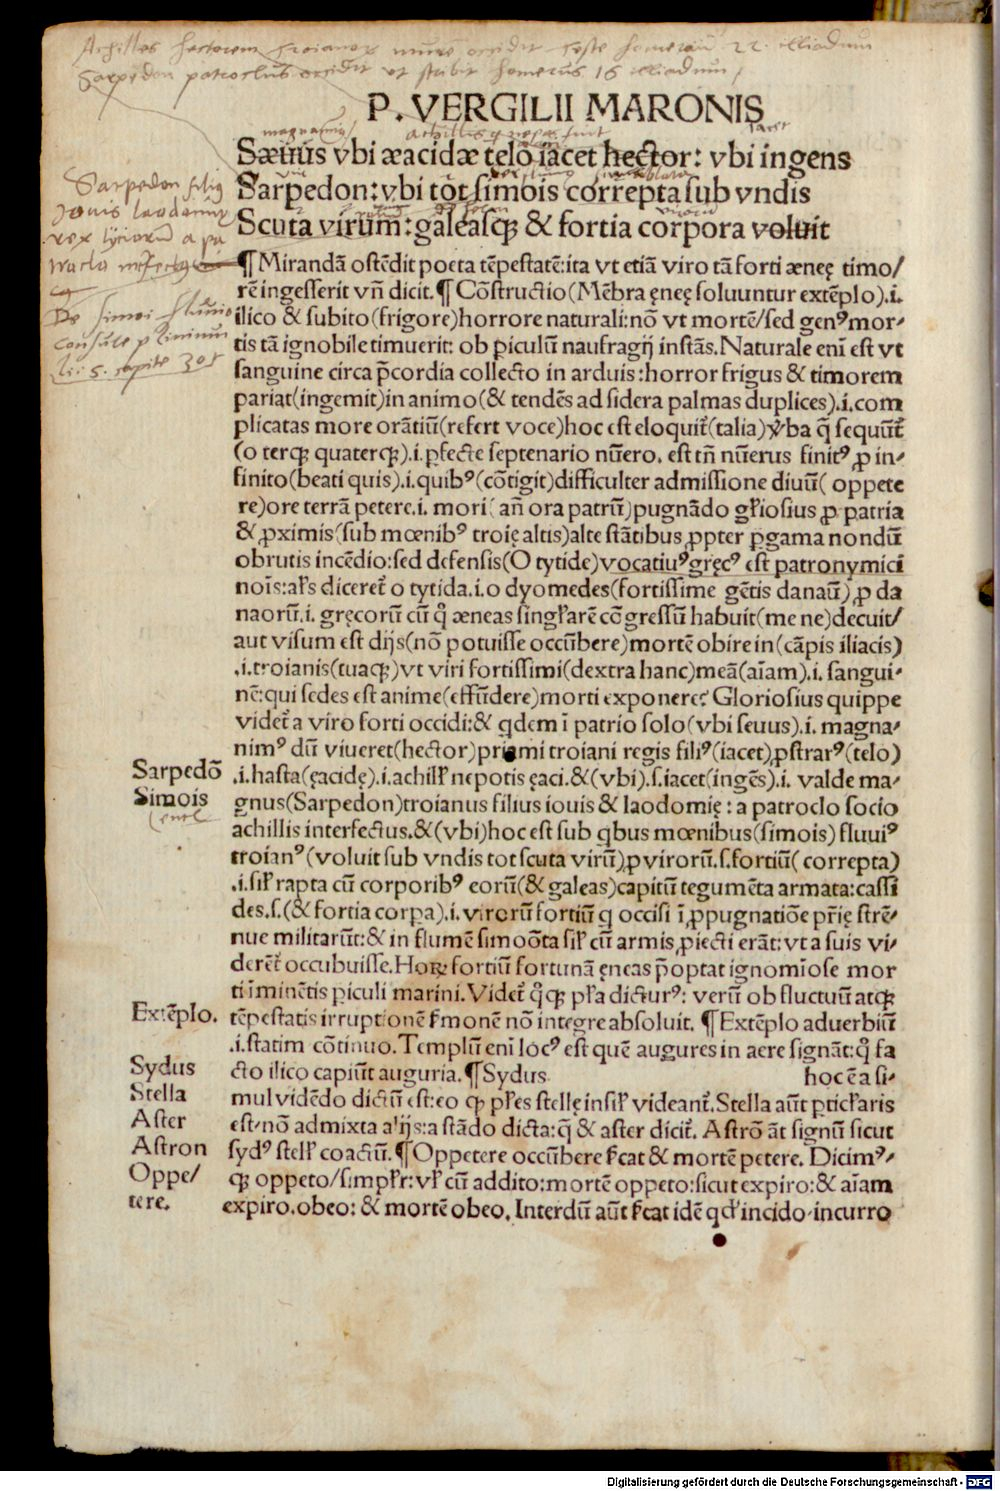 Achilles hectorem troianor occidit teste homerum 22 illiadum
Sarpedon patroclus occidit ut scribit homerus 16 illiadum
P. VERGILII MARONIS
Sæuus vbi æacidæ telo iacet hector: vbi ingens
Sarpedon: vbi tot simois correpta sub vndis
Scuta virum: galeasqꝫ & fortia corpora voluit
Sarpedon filiꝯ
Jouis laodamiꝫ
rex lyciorū a pa
De simoi fluuio
consule plinium
li: 5. capite 30
¶ Mirandā ostēdit poeta tēpestatē: ita vt etiā viro tā forti æneę timo/
rē ingesserit vñ dicit. ¶ Cōstructio (Mēbra ęneę soluuntur extēplo) .i.
ilico & subito (frigore) horrore naturali: nō vt mortē/ sed genꝰ mor-
tis tā ignobile timuerit: ob piculū naufragij instās. Naturale enī est vt
sanguine circa p̄cordia collecto in arduis: horror frigus & timorem
pariat (ingemit) in animo (& tendēs ad sidera palmas duplices) .i. com
plicatas more orātiū (refert voce) hoc est eloquit̄ (talia) v̄ba q̄ sequūt̄
(o terqꝫ quaterqꝫ) .i. pfecte septenario nūero. est tñ nūerus finitꝰ ꝓ in-
finito (beati quis) .i. quibꝰ (cōtigit) difficulter admissione diuū (oppete
re) ore terrā petere .i. mori (añ ora patrū) pugnādo gľiosius ꝓ patria
& ꝓximis (sub mœnibꝰ troię altis) alte stātibus ꝓpter pgama nondū
obrutis incēdio: sed defensis (O tytide) vocatiuꝰ gręcꝰ est patronymici
noīs: aľs diceret̄ o tytida .i. o dyomedes (fortissime gētis danaū) ꝓ da
naorū .i. gręcorū cū q̊ æneas singľarē cōgressū habuit (me ne) decuit/
aut visum est dijs (nō potuisse occūbere) mortē obire in (cāpis iliacis)
.i. troianis (tuaqꝫ) vt viri fortissimi (dextra hanc) meā (aīam) .i. sangui-
nē: qui sedes est anime (effūdere) morti exponere? Gloriosius quippe
videt̄ a viro forti occidi: & qdem ī patrio solo (vbi seuus) .i. magna-
nimꝰ dū viueret (hector) priami troiani regis filiꝰ (iacet) ꝓstrarꝰ (telo)
Sarpedō .i. hasta (ęacidę) .i. achilľ nepotis ęaci. & (vbi) .s. iacet (ingēs) .i. valde ma-
Simois gnus (Sarpedon) troianus filius iouis & laodomię: a patroclo socio
achillis interfectus. & (vbi) hoc est sub qbus mœnibus (simois) fluuiꝰ
troianꝰ (voluit sub vndis tot scuta virū) ꝓ virorū .s. fortiū (correpta)
.i. siľ rapta cū corporibꝰ eorū (& galeas) capitū tegumēta armata: cassi
des .s. (& fortia corpa) .i. virorū fortiū q occisi ī ꝓpugnatiōe p̄rię strē-
nue militarūt: & in flumē simoōta siľ cū armis ꝓiecti erāt: vt a suis vi-
derēt̄ occubuisse. Hoꝝ fortiū fortunā ęneas p̄optat ignomiose mor
ti iminētis piculi marini. Videt̄ q̊qꝫ pľa dicturꝰ: verū ob fluctuū atqꝫ
Extēplo. tēpestatis irruptionē ẜmonē nō integre absoluit. ¶ Extēplo aduerbiū
.i. statim cōtinuo. Templū enī locꝰ est quē augures in aere signāt: q̊ fa
Sydus cto ilico capiūt auguria. ¶ Sydus hoc ē a si-
Stella mul vidēdo dictū est: eo qꝫ pľes stellę in siľ videant̄. Stella aūt pticľaris
Aster est/ nō admixta alijs: a stādo dicta: q̄ & aster dicit̄. Astrō āt signū sicut
Astron sydꝰ stelľ coactū. ¶ Oppetere occūbere ẜcat & mortē petere. Dicimꝰ-
Oppe/ qꝫ oppeto/ simpľr: vľ cū addito: mortē oppeto: sicut expiro: & aīam
tere. expiro. obeo: & mortē obeo. Interdū aūt ẜcat idē qđ incido incurro
Digitalisierung gefördert durch die Deutsche Forschungsgemeinschaft - DFG